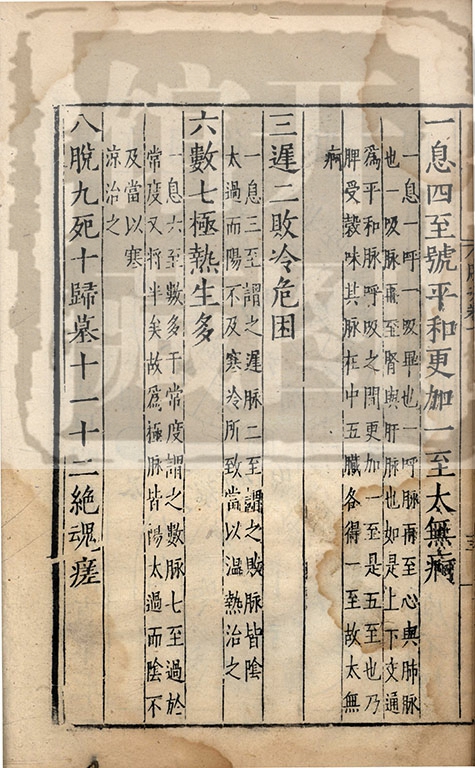 一息四至號平和更加一至太無痾
一息一呼一吸畢也一呼脉再至心與肺脉
也一吸脉再至腎與肝脉也如是上下交通
爲平和脉呼吸之間更加一至是五至也乃
脾受穀味其脉在中五臟各得一至故太無
痾
三遲二敗冷危困
一息三至謂之遲脉二至謂之敗脉皆陰
太過而陽不及寒冷所致當以温熱治之
六數七極熱生多
一息六至數多于常度謂之數脉七至過於
常度又將半矣故爲極脉皆陽太過而陰不
及當以寒
涼治之
八脫九死十歸墓十一十二絶魂瘥